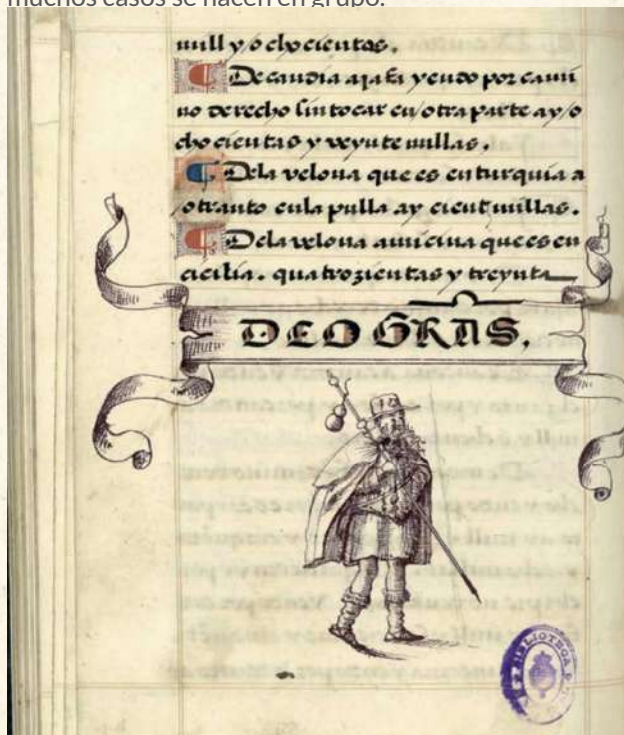 muchos casos se hacen en grupo.
mill y ochocientas.
De candia a jafa yendo por cami
no derecho sin tocar en otra parte ay o
chocientas y veynte millas.
Dela velona que es en turquia a
otranto en la pulla ay cient millas.
Dela velona a micina que es en
cicilia. quatrozientas y treynta
DEO GRAS.
BIBLIOTECA